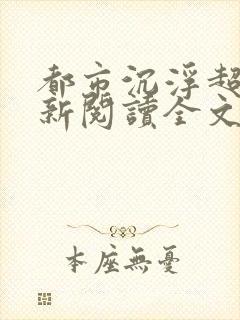 都市沉浮超
新閱讀全文
本座無憂